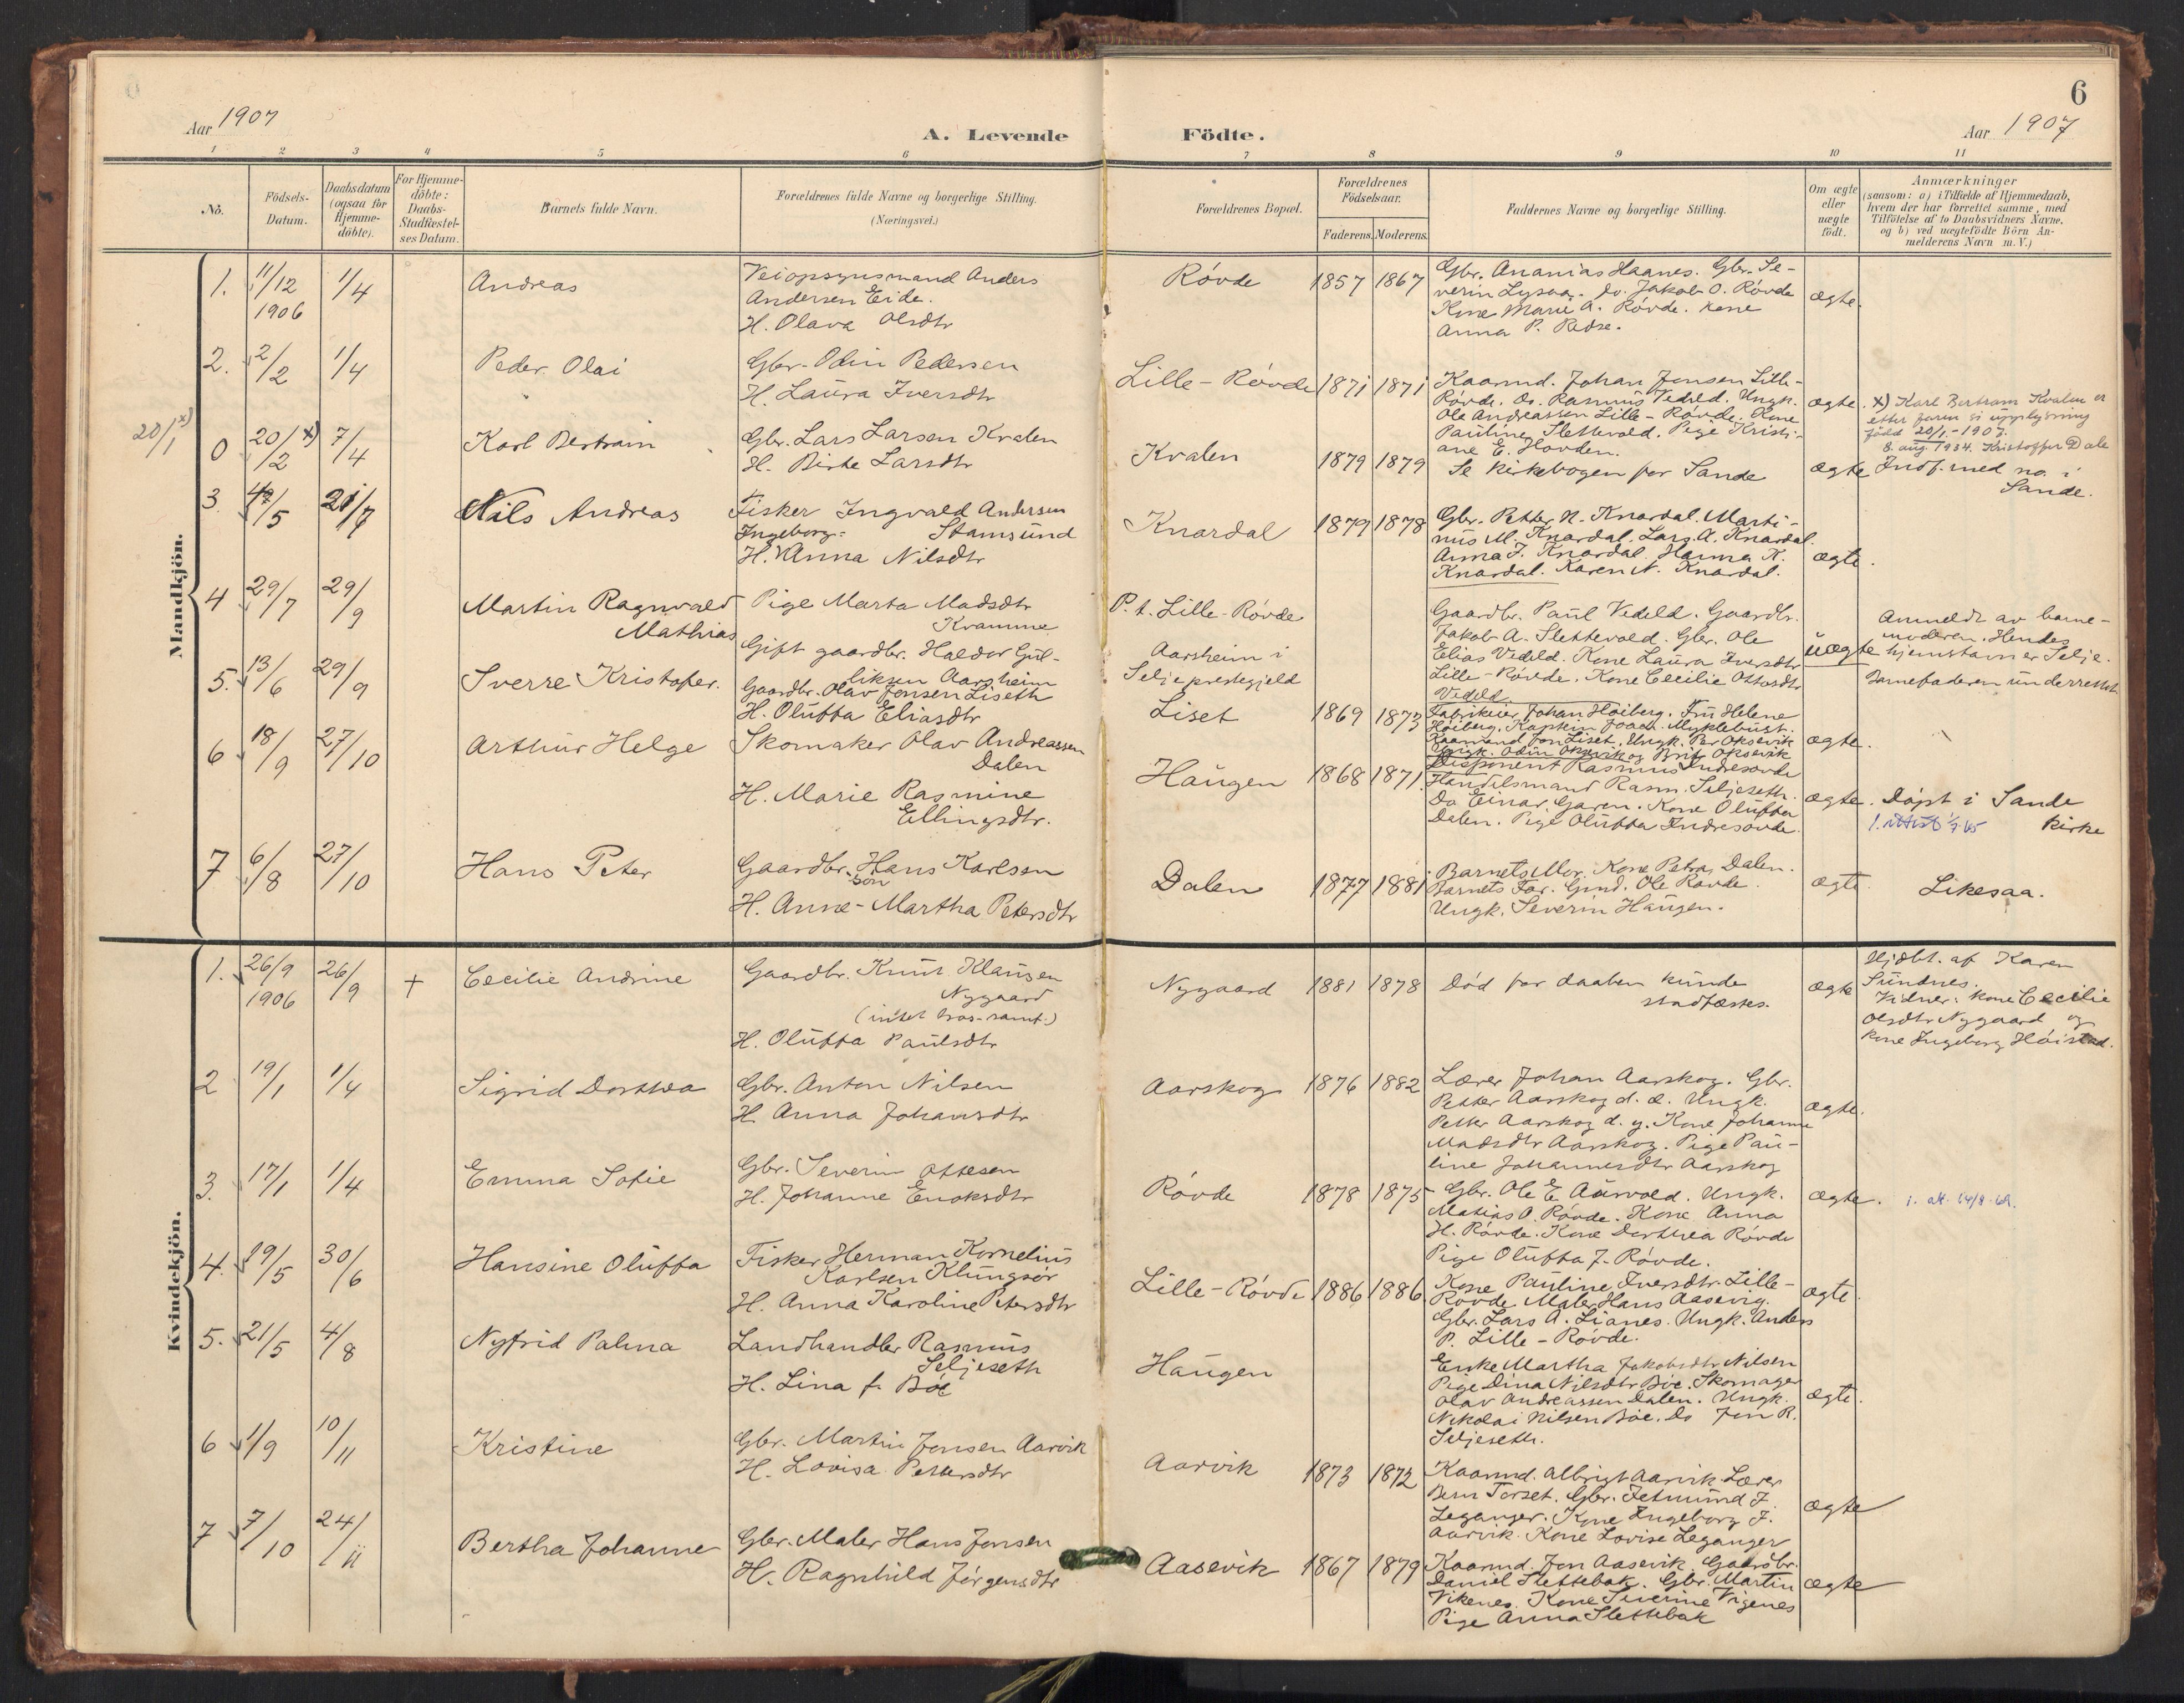 6
Aar 1907
A. Levende Födte.
Aar 1907
1 2 3 4 5 6 7 8 9 10 11
No.
Födsels-
Datum.
Daabsdatum
(ogsaa for
Hjemme-
döbte).
For Hjemme-
döbte:
Daabs-
Stadfæstel-
ses Datum.
Barnets fulde Navn.
Forældrenes fulde Navne og borgerlige Stilling.
(Næringsvei.)
Forældrenes Bopæl.
Forældrenes
Födselsaar.
Faderens. Moderens.
Faddernes Navne og borgerlige Stilling.
Om ægte
eller
uægte
födt.
Anmærkninger
(saasom: a) i Tilfælde af Hjemmedaab,
hvem der har forrettet samme, med
Tilföielse af to Daabsvidners Navne,
og b) ved uægtefödte Börn An-
melderens Navn m. V.)
Mandkjön.
1. 11/12 1906 1/4 Andreas
Veiopsynsmand Anders
Andersen Eide.
H. Olava Olsdtr
Røvde 1857 1867
Gbr. Ananias Haanes. Gbr. Se-
verin Lysaa. Do. Jakob O. Røvde
Kone Marie A. Røvde. Kone
Anna P.
ægte.
2. 2/2 1/4 Peder Olai
Gbr. Odin Pedersen
H. Laura Iversdtr
Lille-Røvde 1871 1871
Kaarmd. Johan Jensen Lille-
Røvde. Do. Rasmus Vedeld. Ungk.
Ole Andreassen Lille-Røvde. Kone
Pauline Slettevold. Pige Kristi-
ane E. Hovden.
ægte.
20/1 x)
0 20/2 x) 7/4 Karl Bertram
Gbr. Lars Larsen Kvalen
H. Birte Larsdtr
Kvalen 1879 1879
Se Kirkebogen for Sande
ægte
x) Karl Bertram Kvalen er
etter faren si upplysning
fødd 20/1 - 1907.
8. aug. 1934. Kristoffer Dale
Indf. med no. i
Sande.
3. 4/5 21/7 Nils Andreas
Fisker Ingvald Andersen
Ingeborg= Stamsund
H. Anna Nilsdtr
Knardal 1879 1878
Gbr. Petter N. Knardal. Marti-
nus M. Knardal. Lars A. Knardal.
Anna J. Knardal. Hanna K.
Knardal. Karen N. Knardal.
ægte.
4 29/7 29/9 Martin Ragnvald
Mathias
Pige Marta Madsdtr
Kvamme
Gift gaardbr. Haldor Gul-
liksen Aarsheim
P. t. Lille-Røvde
Aarsheim i
Selje prestegjeld
Gaardbr. Paul Vedeld. Gaardbr.
Jakob A. Slettevold. Gbr. Ole
Elias Vedeld. Kone Laura Iversdtr
Lille-Røvde. Kone Cecilie Ottosdtr
Vedeld
uægte
Anmeldt av barne-
moderen. Hendes
hjemstavn er Selje.
Barnefaderen underrettet.
5. 13/6 29/9 Sverre Kristofer.
Gaardbr. Olav Jensen Liseth
H. Oluffa Eliasdtr
Liset 1869 1873
Fabrikeier Johan Høiberg. Fru Helene
Høiberg. Kaptein Joach. Myklebust.
Kaarmand Jon Liset. Ungk. Per Oksevik
Ungk. Odin Oksevik og Brit Oksevik
ægte.
6 18/9 27/10 Arthur Helge
Skomaker Olav Andreassen
Dalen
H. Marie Rasmine
Ellingsdtr.
Haugen 1868 1871
Disponent Rasmus Indresovde
Handelsmand Rasm. Seljeseth.
Do Einar Garen. Kone Oluffa
Dalen. Pige Oluffa Indresovde.
ægte.
Døpt i Sande
Kirke
7 6/8 27/10 Hans Peter
Gaardbr. Hans Karlsen
H. Anne-Martha Petersdtr
Dalen 1877 1881
Barnets Mor. Kone Petra Dalen.
Barnets Far. Gmd. Ole Røvde.
Ungk. Severin Haugen.
ægte.
Likesaa.
Kvindekjön.
1. 26/9 1906 26/9 + Cecilie Andrine
Gaardbr. Knut Klausen
Nygaard
H. Oluffa Paulsdtr
Nygaard 1881 1878
Død før daaben kunde
stadfæstes.
ægte
Hjdbt. af Karen
Sundnes.
Vidner: Kone Cecilie
Olsdtr Nygaard og
Kone Ingeborg Høistad.
2 19/1 1/4 Sigrid Dorthea
Gbr. Anton Nilsen
H. Anna Johansdtr
Aarskog 1876 1882
Lærer Johan Aarskog. Gbr.
Petter Aarskog d. æ. Ungk.
Petter Aarskog d. y. Kone Johanne
Madsdtr Aarskog. Pige Pau-
line Johannesdtr Aarskog
ægte.
3. 17/1 1/4 Emma Sofie
Gbr. Severin Ottesen
H. Johanne Enoksdtr
Røvde 1878 1875
Gbr. Ole E. Aurvold. Ungk.
Matias O. Røvde. Kone Anna
H. Røvde. Kone Dorthea Røvde
Pige Oluffa J. Røvde.
ægte.
4. 29/5 30/6 Hansine Oluffa
Fisker Herman Kornelius
Karlsen Klungsør
H. Anna Karoline Petersdtr
Lille-Røvde 1886 1886
Kone Pauline Iversdtr. Lille-
Røvde Maler Hans Aasevig.
Gbr. Lars A. Lianes. Ungk. Anders
P. Lille-Røvde.
ægte.
5. 21/5 4/8 Nyfrid Palma
Landhandler Rasmus
Seljeseth
H. Lina f. Bøe
Haugen
Enke Martha Jakobsdtr Nilsen
Pige Dina Nilsdtr Bøe. Skomager
Olav Andreassen Dalen. Ungk.
Nikolai Nilsen Bøe. Do Jon R.
Seljeseth.
ægte.
6 1/9 10/11 Kristine
Gbr. Martin Jensen Aarvik
H. Lovisa Pettersdtr
Aarvik 1873 1872
Kaarmd. Albrigt Aarvik. Lærer
Bern Torset. Gbr. Jetmund J.
Leganger. Kone Ingeborg J.
Aarvik. Kone Lovise Leganger
ægte
7 7/10 24/11 Bertha Johanne
Gbr. Maler Hans Jensen
H. Ragnhild Jørgensdtr
Aasevik 1867 1879
Kaarmd. Jon Aasevik. Gaardbr.
Daniel Slettebak. Gbr. Martin
Vikenes. Kone Severine Vigenes
Pige Anna Slettebak
ægte